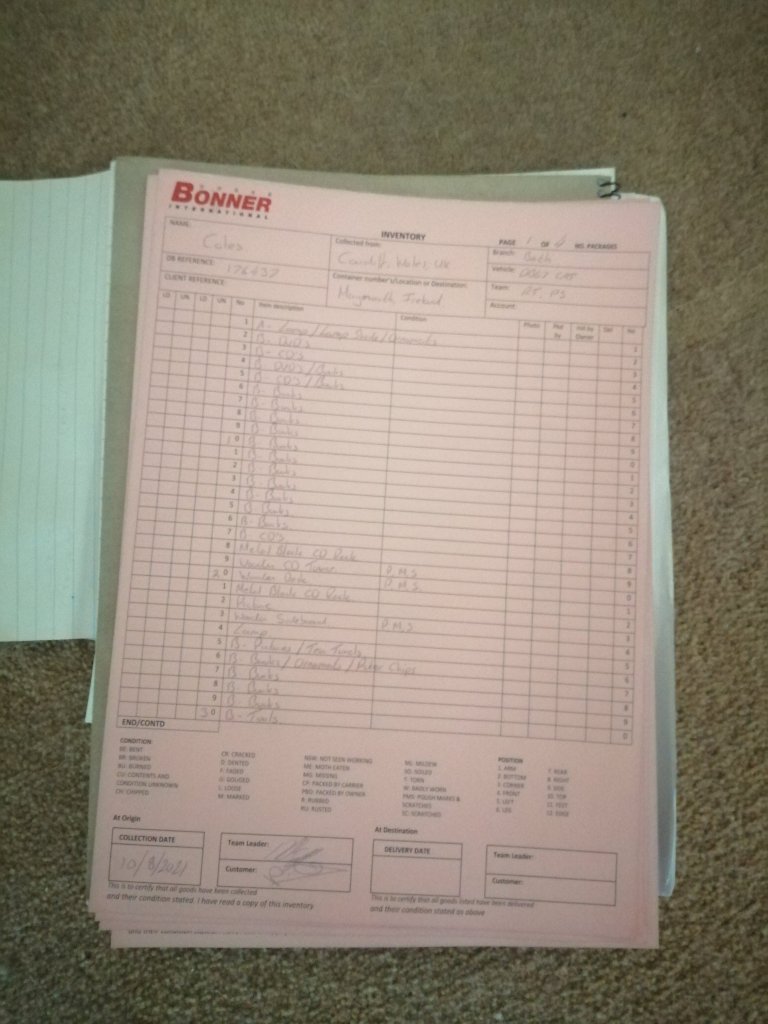 BONNER
INTERNATIONAL
INVENTORY
PAGE 1 OF 4 NO. PACKAGES
NAME:
Coles
Collected from:
Cardiff, Wales, UK
Branch:
Vehicle:
OB REFERENCE:
176437
Container number's/Location or Destination:
Team:
CLIENT REFERENCE:
Maynooth, Ireland
Account:
LO UN LO UN No Item description Condition Photo Pkd by Del No
1 A- Lamp / Lamp Shade / Ornaments 1
2 B- DVDs 2
3 B- CDs 3
4 B- DVDs / Books 4
5 B- CDs / Books 5
6 B- Books 6
7 B- Books 7
8 B- Books 8
9 B- Books 9
10 B- Books 0
1 B- Books 1
2 B- Books 2
3 B- Books 3
4 B- Books 4
5 B- Books 5
6 B- Books 6
7 B- CDs 7
8 Metal Black CD Rack 8
9 Wooden CD Tower P.M.S 9
20 Wooden Desk P.M.S. 0
1 Metal Black CD Rack 1
2 Picture 2
3 Wooden Sideboard P.M.S 3
4 Lamp 4
5 B- Pictures / Tea Towels 5
6 B- Books / Ornaments / Poker Chips 6
7 B- Books 7
8 B- Books 8
9 B- Books 9
30 B- Tools 0
END/CONTD
CONDITION:
BE: BENT
BR: BROKEN
BU: BURNED
CU: CONTENTS AND
CONDITION UNKNOWN
CH: CHIPPED
CR: CRACKED
D: DENTED
F: FADED
G: GOUGED
L: LOOSE
M: MARKED
NSW: NOT SEEN WORKING
ME: MOTH EATEN
MG: MISSING
CP: PACKED BY CARRIER
PBO: PACKED BY OWNER
R: RUBBED
RU: RUSTED
ML: MILDEW
SO: SOILED
T: TORN
W: BADLY WORN
PMS: POLISH MARKS &
SCRATCHES
SC: SCRATCHED
POSITION
1. ARM
2. BOTTOM
3. CORNER
4. FRONT
5. LEFT
6. LEG
7. REAR
8. RIGHT
9. SIDE
10. TOP
11. FEET
12. EDGE
At Origin
COLLECTION DATE
10/8/2021
Team Leader:
Customer:
This is to certify that all goods have been collected
and their condition stated. I have read a copy of this inventory
At Destination
DELIVERY DATE
Team Leader:
Customer:
This is to certify that all goods listed have been delivered
and their condition stated as above